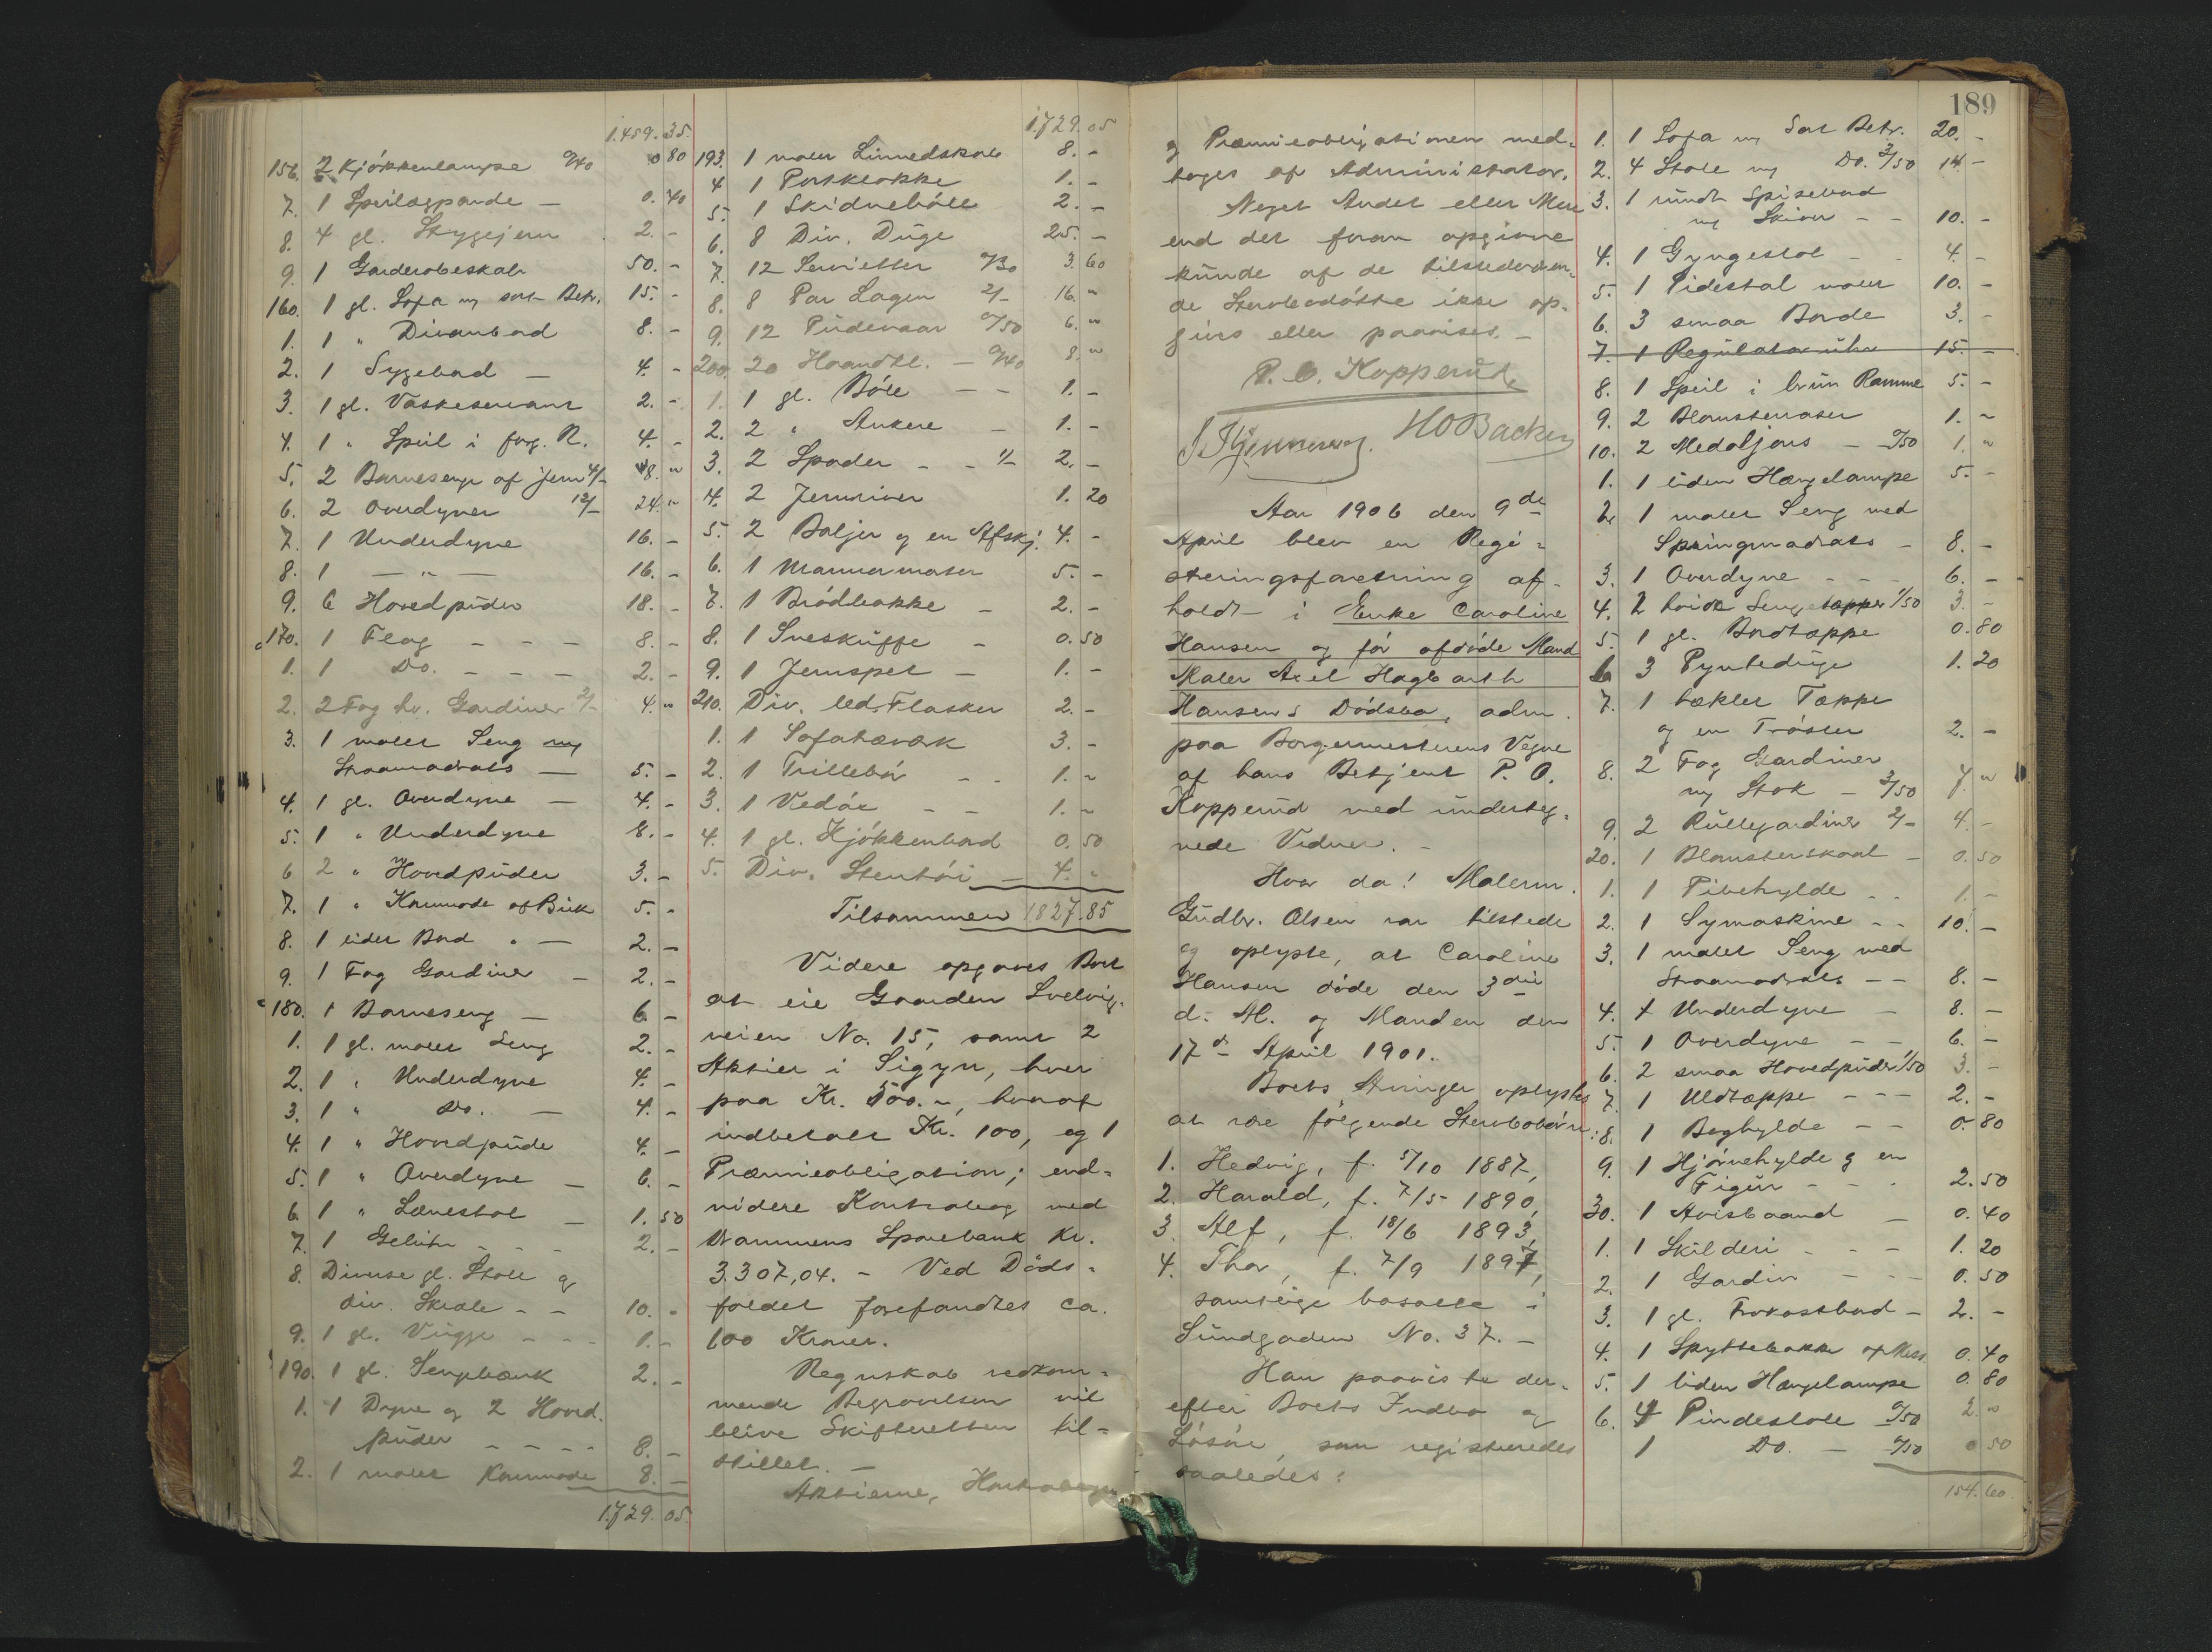 1.459.35.
156. 2 Kjøkkenlampe 0/40 0 80
7. 1 Speilægpande — 0.40
8. 4 gl. Strygejern 2.-
9. 1 Garderobeskab 50.-
160. 1 gl. Sofa m sort Betr. 15.-
1. 1 " Divanbord 8.-
2. 1 Sygebord — 4.-
3. 1 gl. Vaskeservant 2.-
4. 1 " Speil i forg. R. 4.-
5. 2 Barnesenge af Jern 4/- 8."
6. 2 Overdyner 12/- 24."
7. 1 Underdyne 16.-
8. 1 —"— 16.-
9. 6 Hovedpuder 18.-
170. 1 Flag - - - 8.-
1. 1 Do. - - - 2.-
2. 2 Fag hv. Gardiner 2/- 4."
3. 1 malet Seng m
Straamadrats — 5.-
4. 1 gl. Overdyne — 4.-
5. 1 " Underdyne 8.-
6 2 " Hovedpuder 3.-
7. 1 " Kommode af Birk 5.-
8. 1 lidet Bord " — 2.-
9. 1 Fag Gardiner — 2.-
180. 1 Barneseng — 6.-
1. 1 gl. malet Seng 2.-
2. 1 " Underdyne 4.-
3. 1 " Do. — 4.-
4. 1 " Hovedpude 4.-
5. 1 " Overdyne — 6.-
6. 1 " Lænestol — 1.50
7. 1 - - - 2.-
8. Diverse gl. Stole og
div. Skrale - - 10.-
9. 1 gl. Vugge - - - 1.-
190. 1 gl. Sengebænk 2.-
1. 1 Dyne og 2 Hoved.
puder - - - - 8.-
2. 1 malet Kommode 8.-
1.729.05.
1.729.05
193. 1 malet Linnedskab 8.-
4 1 Portklokke 1.-
5. 1 Skidnebøtte 2.-
6. 8 Div. Duge 25.-
7. 12 Servietter 0/30 3.60
8. 8 Par Lagen 2/- 16."
9. 12 Pudevaar 0/50 6."
200. 20 Haandkl. — 0/40 8."
1. 1 gl. Bøtte — - 1.-
2. 2 " Ankere — 1.-
3. 2 Spader - - 1/- 2.-
4. 2 Jernriver 1.20
5. 2 Baljer og en Afskj. 4.-
6. 1 5.-
7. 1 Brødbakke — 2.-
8. 1 Sneskuffe — 0.50
9. 1 Jernspet — 1.-
210. Div. led. Flasker 2.-
1. 1 3.-
2. 1 Trillebør - - 1.-
3. 1 Vedøx - - 1.-
4. 1 gl. Kjøkkenbord 0.50
5. Div. Stentøi — 4.-
Tilsammen 1827.85
Videre opgaves Boet
at eie Gaarden Svelvig-
veien No. 15, samt 2
Aktier i Sigyn, hver
paa Kr. 500.-, hvoraf
indbetalt Kr. 100, og 1
Præmieobligation; end-
videre Kontrabog med
Drammens Sparebank Kr.
3.307,04. - Ved Døds-
faldet forefandtes ca.
600 Kroner.
Regnskab vedkom-
mende Begravelsen vil
blive Skifteretten til-
stillet. —
Aktierne, Kontrabogen
og Præmieobligationen med-
toges af Administrator.
Noget Andet eller Mere
end det foran opgivne
kunde af de tilstedeværen-
de Stervbodøttre ikke op-
gives eller paavises. -
P. O. Kopperud
HO Backer
Aar 1906 den 9de
April blev en Regi-
streringsforretning af-
holdt i Enke Caroline
Hansen og før afdøde Mand
Maler Axel Hagbarth
Hansens Dødsbo, adm.
paa Borgermesterens Vegne
af hans Betjent P. O.
Kopperud med underteg-
nede Vidner. -
Hvor da! Malerm.
Gudbr. Olsen var tilstede
og oplyste, at Caroline
Hansen døde den 3die
d. M. og Manden den
17de April 1901.
Boets Arvinger oplystes
at være følgende Stervbobørn:
1. Hedvig, f. 5/10 1887,
2. Harald, f. 7/5 1890,
3. Alf, f. 18/6 1893,
4. Thor, f. 7/9 1897,
samtlige bosatte i
Sundgaden No. 37. -
Han paaviste der-
efter Boets Indbo og
Løsøre, som registreredes
saaledes:
189
1. 1 Sofa m Sort Betr. 20.-
2. 4 Stole m Do. 3/50 14-
3. 1 rundt Spisebord
m Skiver - - 10.-
4. 1 Gyngestol - - 4.-
5. 1 Pidestal malet 10.-
6. 3 smaa Borde 3.-
7. 1 Regulatoruhr 15.-
8. 1 Speil i brun Ramme 5.-
9. 2 Blomstervaser 1.-
10. 2 Medaljons — 0/50 1."
1. 1 liden Hængelampe 5.-
2. 1 malet Seng med
Springmadrats — 8.-
3. 1 Overdyne - - - 6.-
4. 2 hvide Sengetæpper 1/50 3.-
5. 1 gl. Bordtæppe 0.80
6 3 Pyntedúge 1.20
7. 1 hæklet Tæppe
og en Trøster 2.-
8. 2 Fag Gardiner
m Stok — 3/50 7."
9. 2 Rullegardiner 2/- 4.-
20. 1 Blomsterskaal — 0.50
1. 1 Pibehylde - - 1.-
2. 1 Symaskine - - 10.-
3. 1 malet Seng med
Straamadrats — - 8.-
4. 1 Underdyne — 8.-
5. 1 Overdyne — - 6.-
6. 2 smaa Hovedpuder 1/50 3.-
7. 1 Uldtæppe - - - 2.-
8. 1 Boghylde - - 0.80
9. 1 Hjørnehylde og en
Figur - - - 2.50
30. 1 Avisbaand — 0.40
1. 1 Skilderi - - - 1.20
2. 1 Gardin - - - 0.50
3. 1 gl. Frokostbord — 2.-
4. 1 Spyttebakke af Mess. 0.40
5. 1 liden Hængelampe 0.80
6. 4 Pindestole 0/50 2."
1 Do. — 0/50 0 50
154.60.